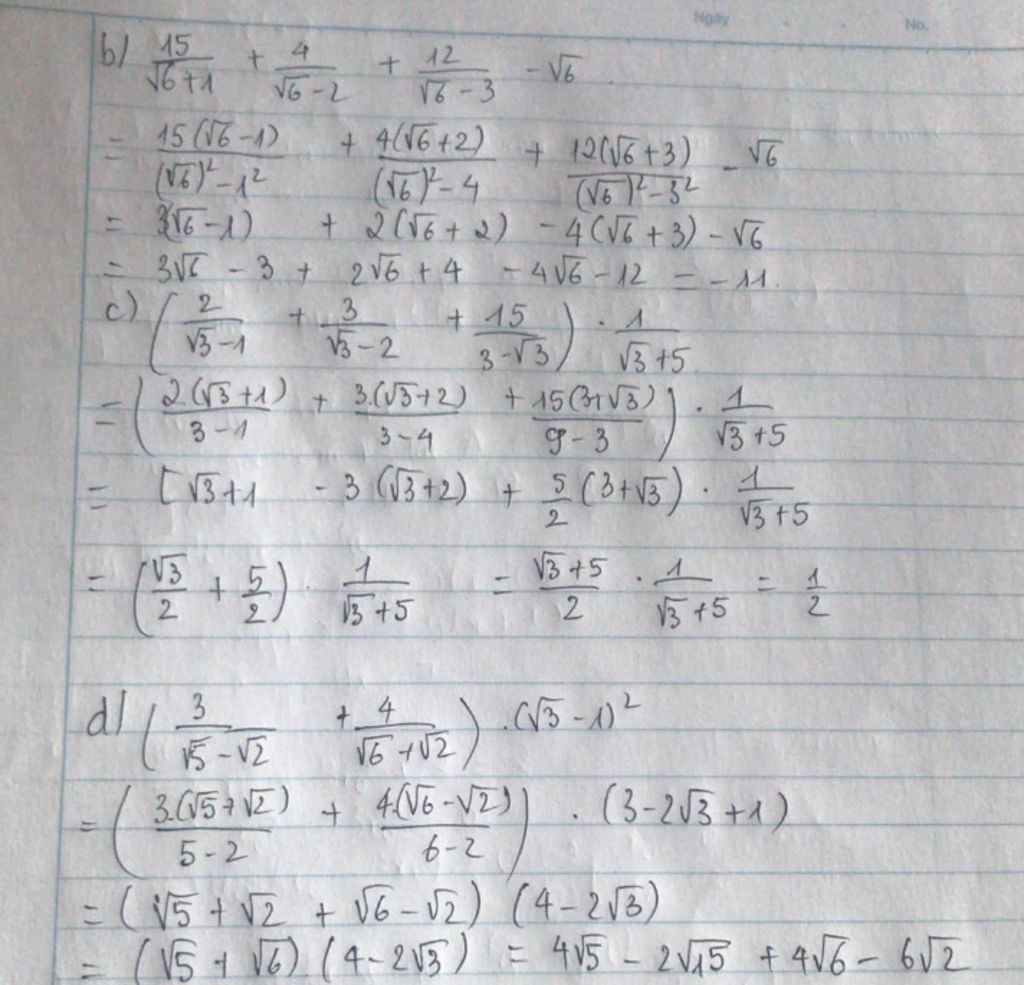 Ngày . . No.
b) 15/(√6+1) + 4/(√6-2) + 12/(√6-3) - √6
= 15(√6-1)/((√6)²-1²) + 4(√6+2)/((√6)²-4) + 12(√6+3)/((√6)²-3²) - √6
= 3(√6-1) + 2(√6+2) - 4(√6+3) - √6
= 3√6 - 3 + 2√6 + 4 - 4√6 - 12 = -11.
c) (2/(√3-1) + 3/(√3-2) + 15/(3-√3)) . 1/(√3+5)
= (2.(√3+1)/(3-1) + 3.(√3+2)/(3-4) + 15(3+√3)/(9-3)) . 1/(√3+5)
= [√3+1 - 3(√3+2) + 5/2(3+√3) . 1/(√3+5)
= (√3/2 + 5/2) . 1/(√3+5) = (√3+5)/2 . 1/(√3+5) = 1/2
d) (3/(√5-√2) + 4/(√6+√2)) .(√3-1)²
= (3.(√5+√2)/(5-2) + 4.(√6-√2)/(6-2)) . (3-2√3+1)
= (√5+√2 + √6-√2) (4-2√3)
= (√5+√6).(4-2√3) = 4√5 - 2√15 + 4√6 - 6√2